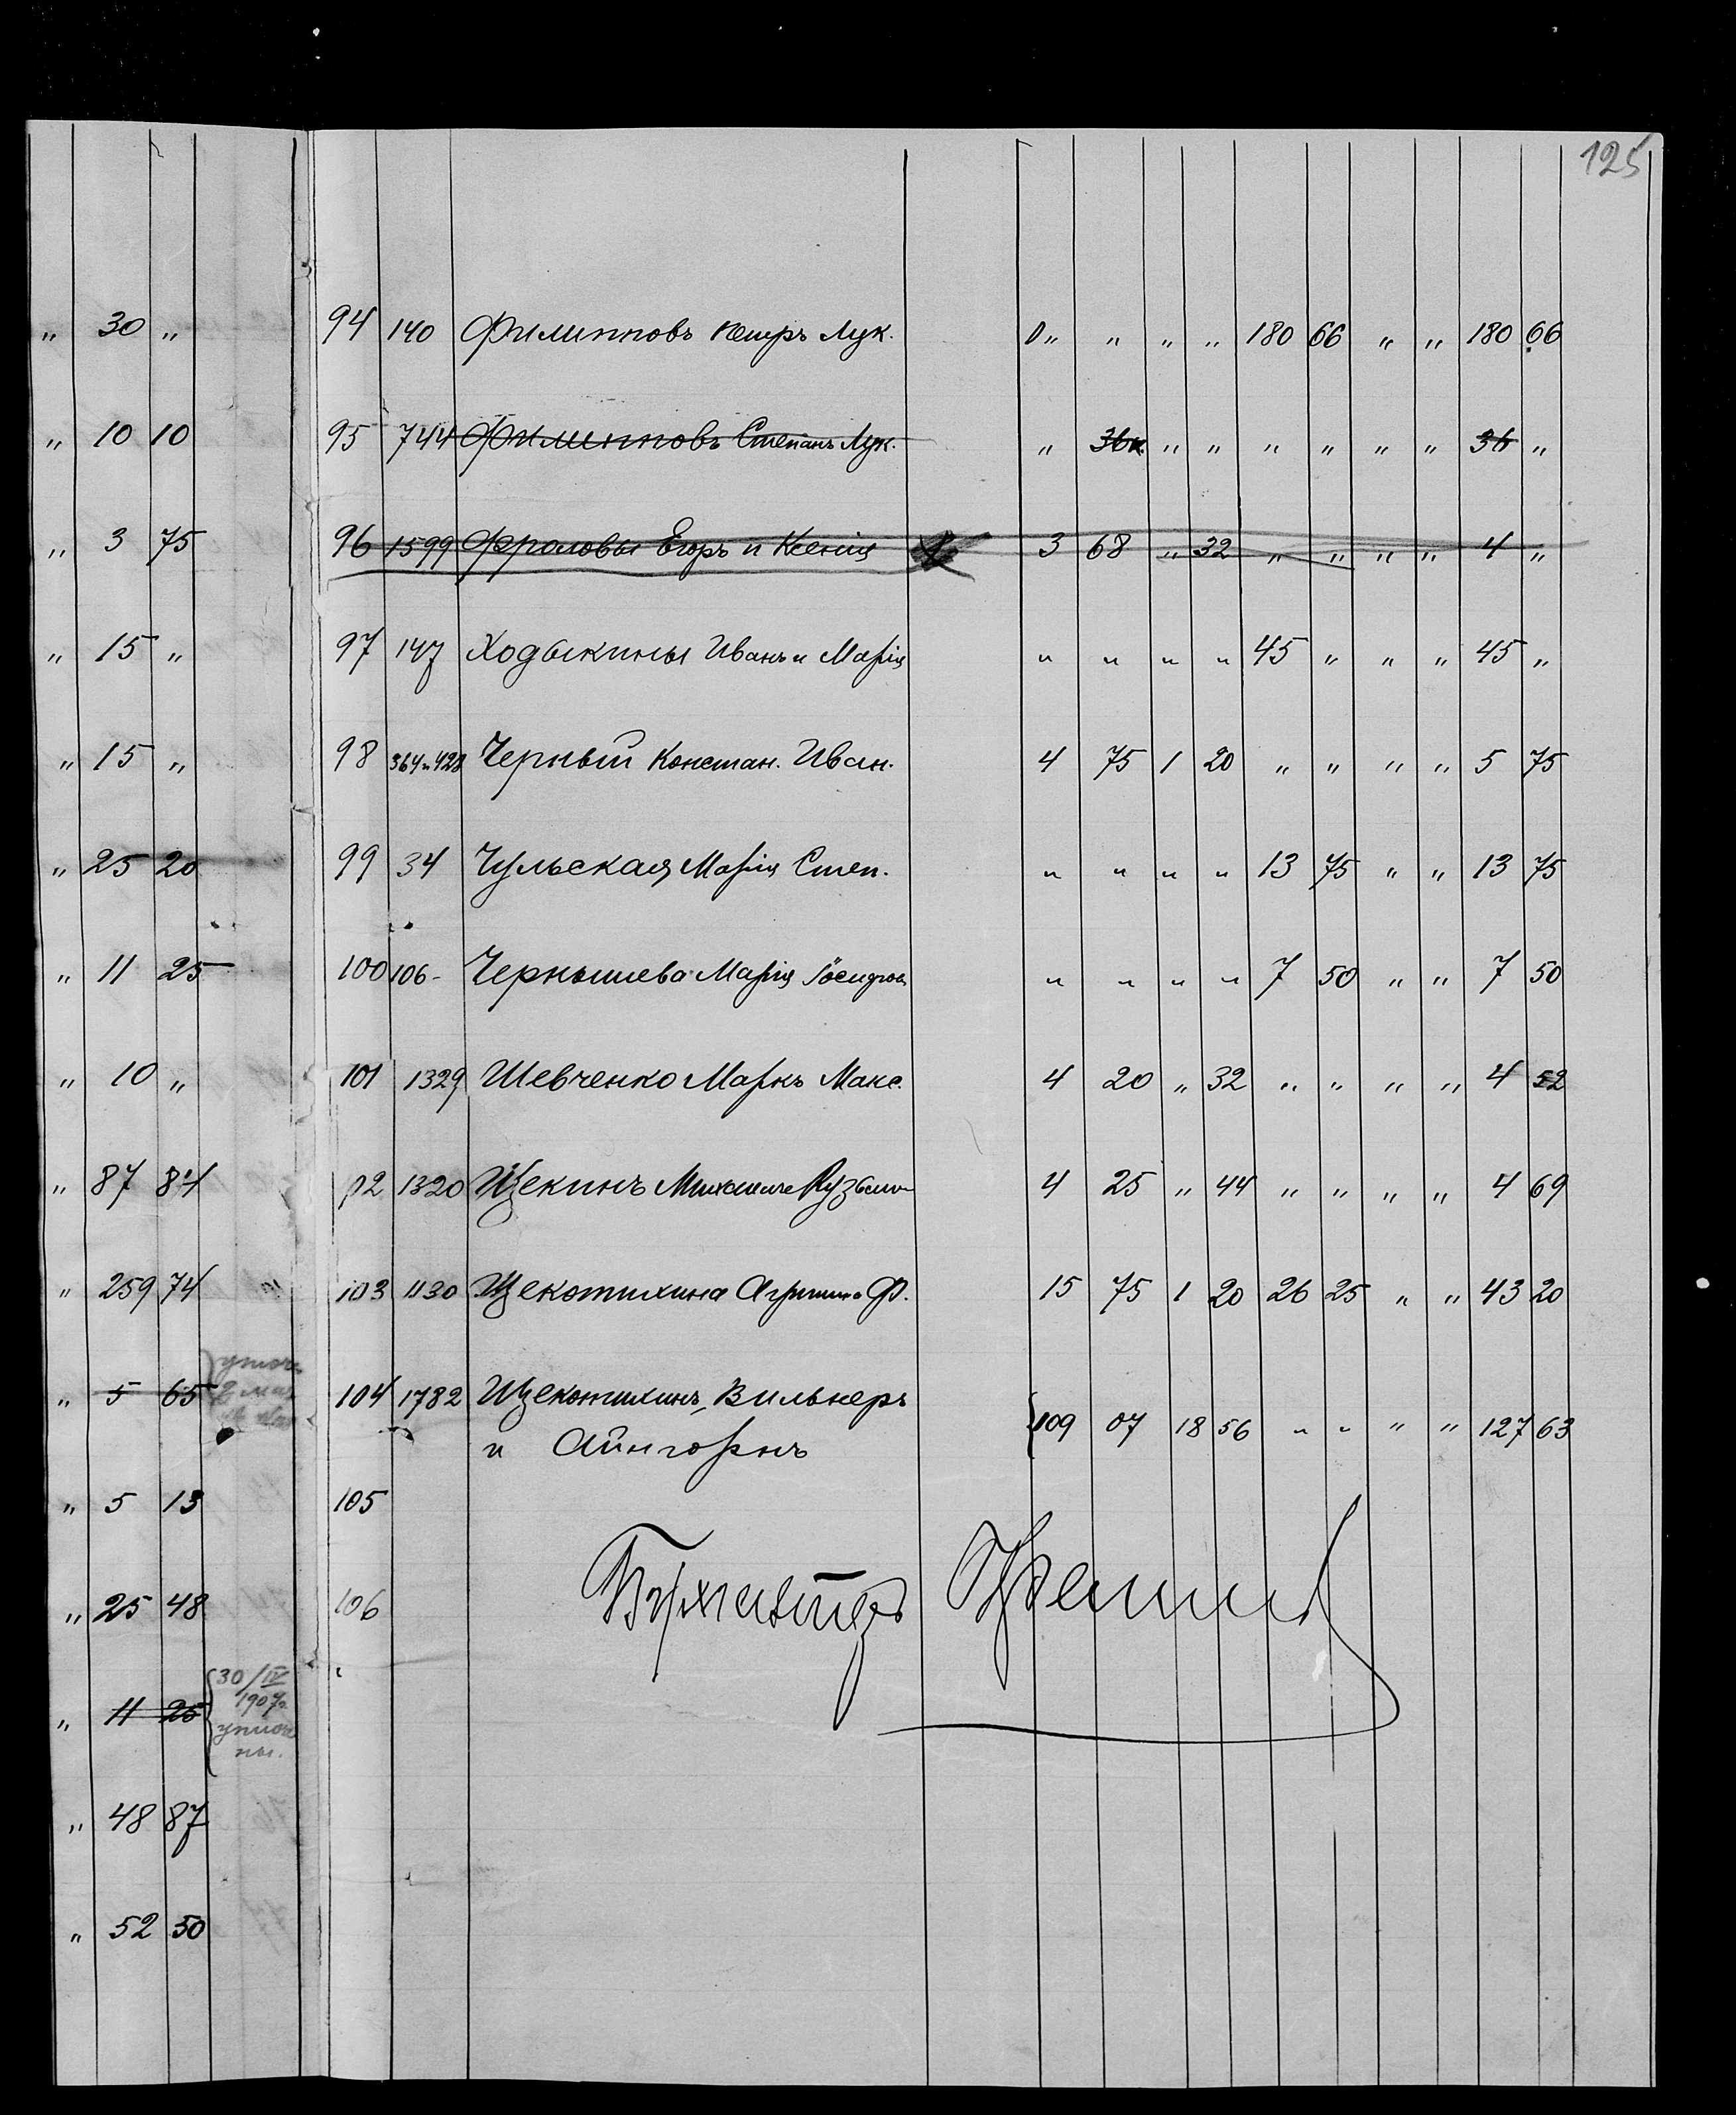 125
" 30 "
" 10 10
" 3 75
" 15 "
" 15 "
" 25 20
" 11 25
" 10 "
" 87 84
" 259 74
" 5 65
" 5 13
" 25 48
" 11 25 30/IV
1907г.
уплоче
ны.
" 48 87
" 52 50
94 140 Филипповъ Петръ Лук. " " " " 180 66 " " 180 66
95 744 Филипповъ Степанъ Лук. " 36к. " " " " " " 36 "
96 1599 Фроловы Егоръ и Ксенія 3 68 " 32 " " " " 4 "
97 147 Ходыкины Иванъ и Марія " " " " 45 " " " 45 "
98 364 и 428 Черный Констан. Иван. 4 75 1 20 " " " " 5 75
99 34 Чульская Марія Степ. " " " " 13 75 " " 13 75
100 106 - Чернышева Марія " " " " 7 50 " " 7 50
101 1329 Шевченко Маркъ Макс. 4 20 " 32 " " " " 4 52
102 1320 Щекинъ 4 25 " 44 " " " " 4 69
103 1130 Щекотихина Ф. 15 75 1 20 26 25 " " 43 20
104 1782 Щекотихинъ, Вильнеръ
и Айнгорнъ 109 07 18 56 " " " " 127 63
105
106
Бухгалтеръ